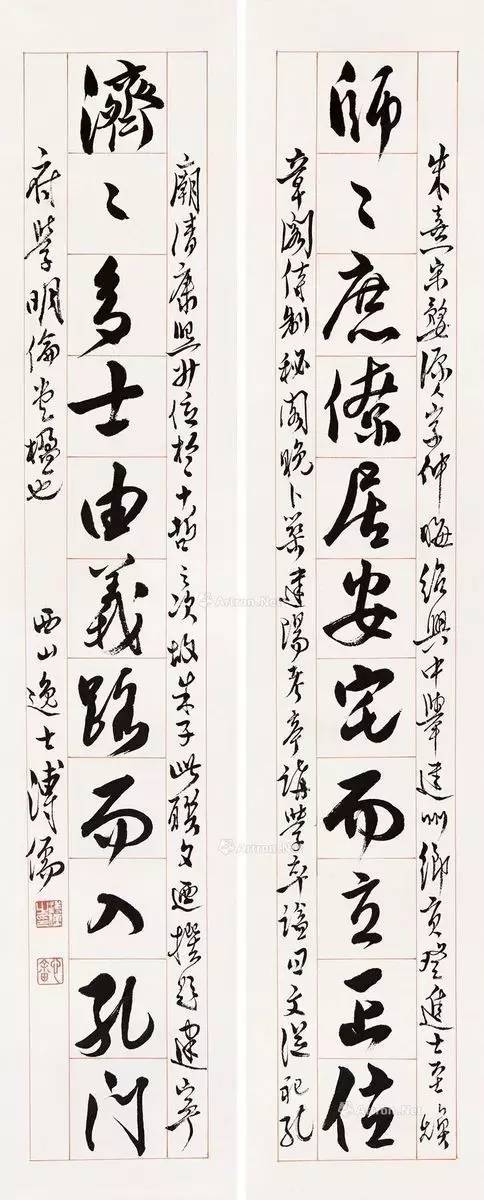 朱熹宋婺源人字仲晦紹興中舉建州鄉貢登進士至煥
師〻庶僚居安宅而立正位
章閣待制秘閣晚卜築建陽考亭講學卒謚曰文從祀孔
廟清康熙升位於十哲之次故朱子此聯文廼撰題建寧
濟〻多士由義路而入孔門
府學明倫堂楹也 西山逸士溥儒
Artron.Net
Artron.Net